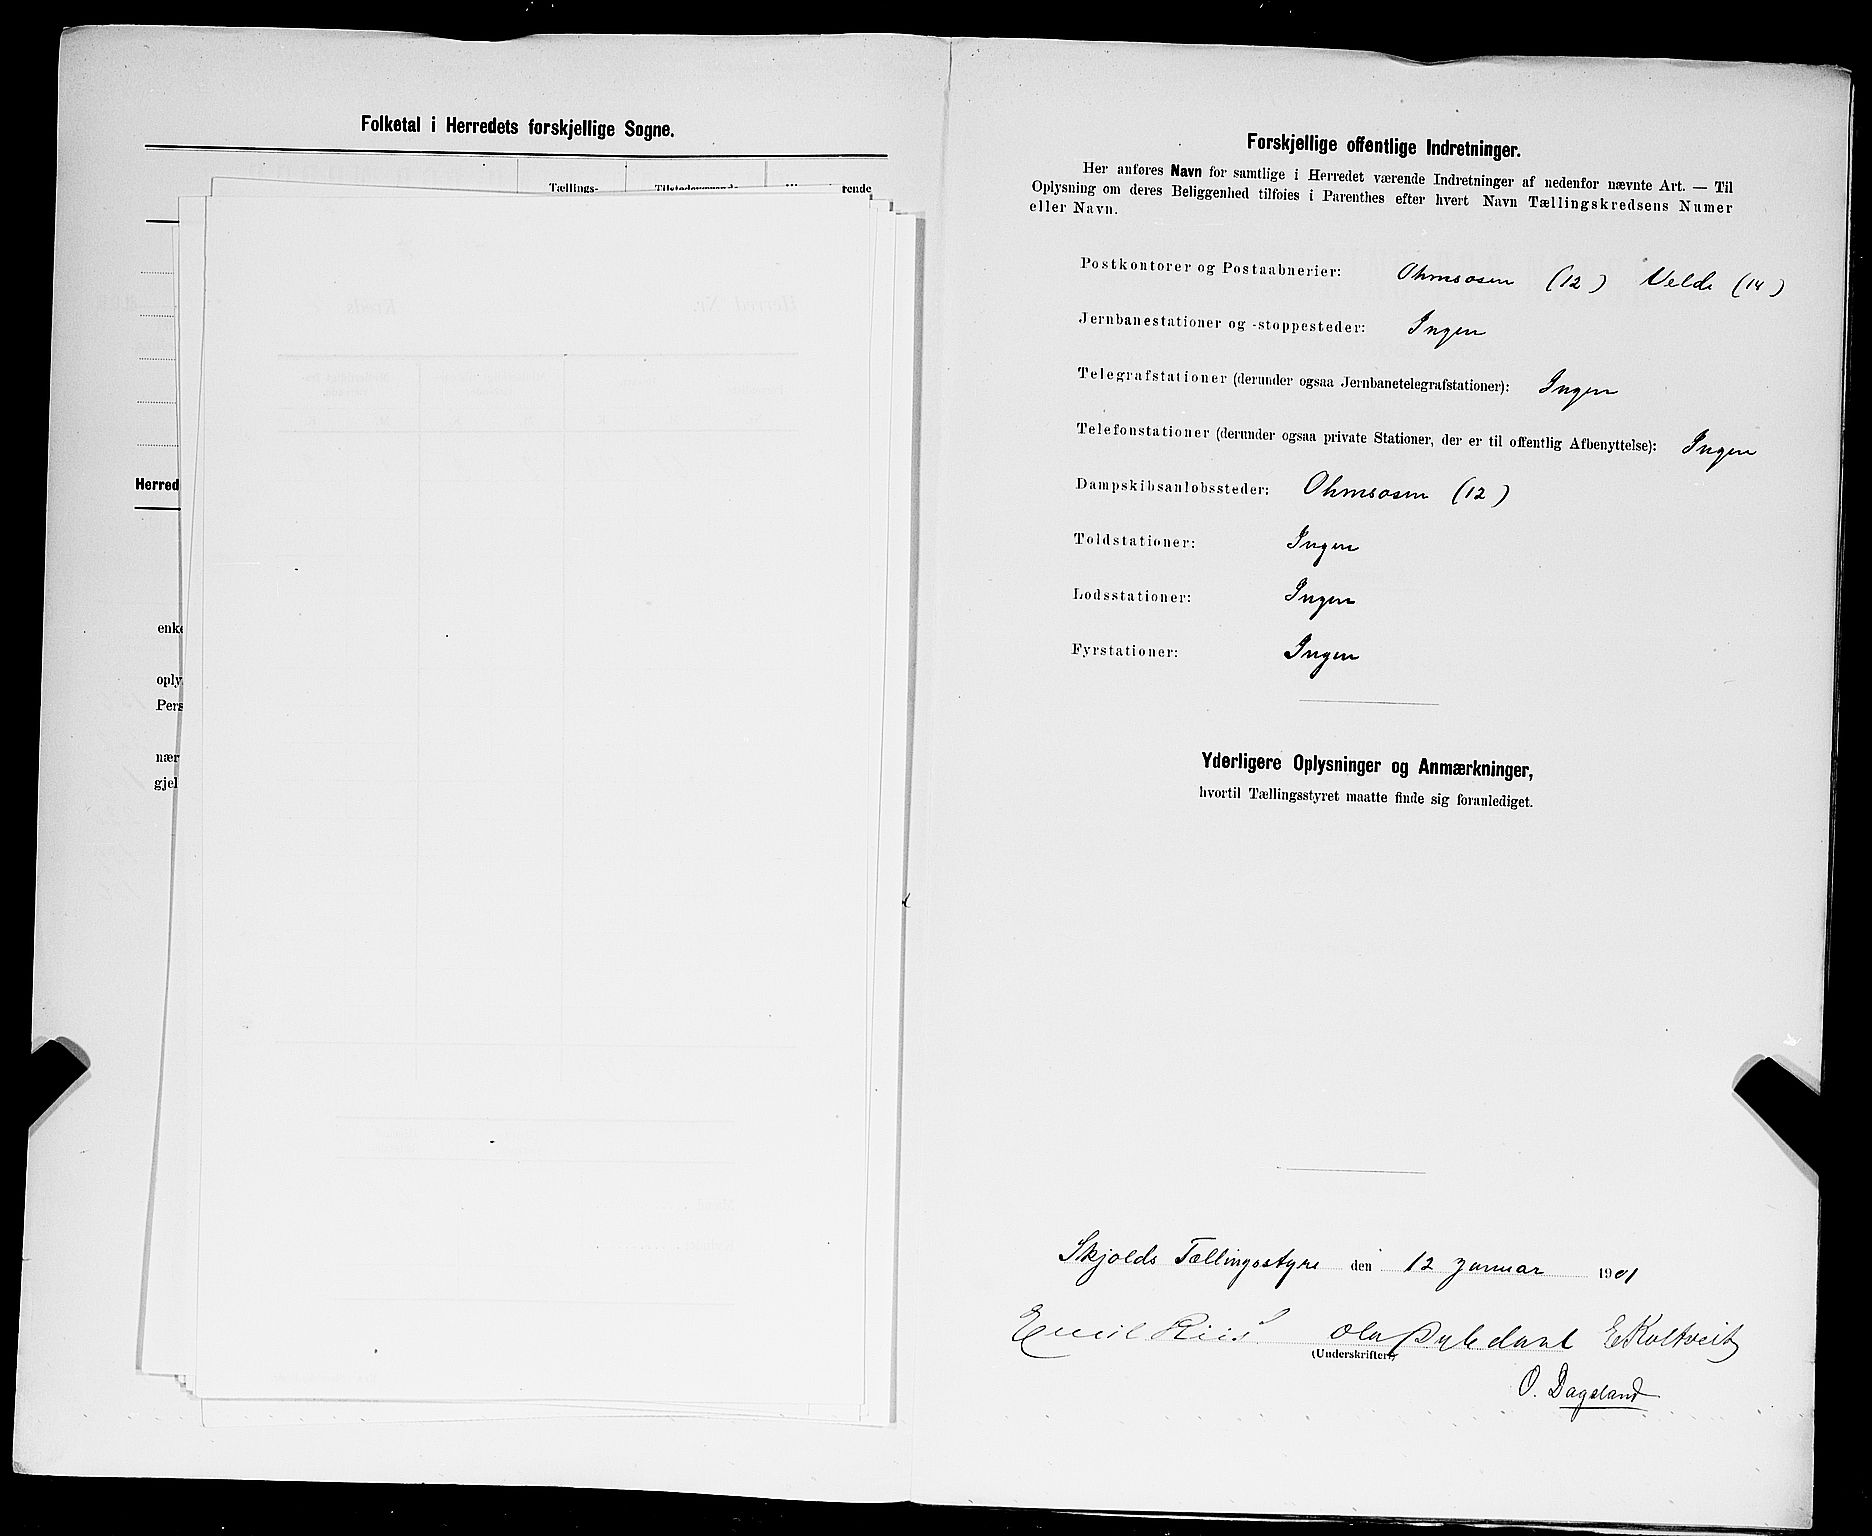 Folketal i Herredets forskjellige Sogne.
Tællings-
rende
Herred
enke
oply
Pers
nær
gjel
Forskjellige offentlige Indretninger.
Her anføres Navn for samtlige i Herredet værende Indretninger af nedenfor nævnte Art. — Til
Oplysning om deres Beliggenhed tilføies i Parenthes efter hvert Navn Tællingskredsens Numer
eller Navn.
Postkontorer og Postaabnerier: Ohmsosen (12) Velde (14)
Jernbanestationer og -stoppesteder: Ingen
Telegrafstationer (derunder ogsaa Jernbanetelegrafstationer): Ingen
Telefonstationer (derunder ogsaa private Stationer, der er til offentlig Afbenyttelse): Ingen
Dampskibsanløbssteder: Ohmsosen (12)
Toldstationer: Ingen
Lodsstationer: Ingen
Fyrstationer: Ingen
Yderligere Oplysninger og Anmærkninger,
hvortil Tællingsstyret maatte finde sig foranlediget.
Skjolds Tællingsstyre den 12 Januar 1901
Emil Riis Ola E Koltveit
(Underskrifter)
O. Dagsland